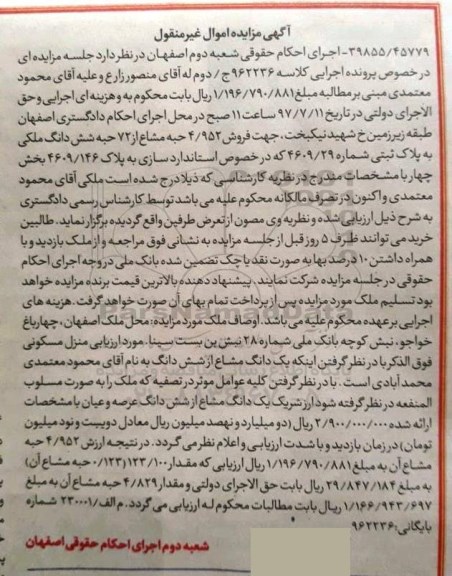 آگهی مزایده اموال غیرمنقول
۳۹۸۵۵/۴۵۷۷۹-اجرای احکام حقوقی شعبه دوم اصفهان در نظر دارد جلسه مزایده ای
در خصوص پرونده اجرایی کلاسه ۹۶۲۲۳۶ ج/ دوم له آقای منصور زارع و علیه آقای محمود
معتمدی مبنی بر مطالبه مبلغ ۱/۱۹۶/۷۹۰/۸۸۱ ریال بابت محکوم به و هزینه ای اجرایی و حق
الاجرای دولتی در تاریخ ۹۷/۷/۱۱ ساعت ۱۱ صبح در محل اجرای احکام دادگستری اصفهان
طبقه زیرزمین خ شهید نیکبخت، جهت فروش ۴/۹۵۲ حبه مشاع از ۷۲ حبه شش دانگ ملکی
به پلاک ثبتی شماره ۴۶۰۹/۲۹ که در خصوص استاندارد سازی به پلاک ۴۶۰۹/۱۴۶ بخش
چهار با مشخصات مندرج در نظریه کارشناسی که ذیلا درج شده است ملکی آقای محمود
معتمدی و اکنون در تصرف مالکانه محکوم علیه می باشد توسط کارشناس رسمی دادگستری
به شرح ذیل ارزیابی شده و نظریه وی مصون از تعرض طرفین واقع گردیده برگزار نماید. طالبین
خرید می توانند ظرف ۵ روز قبل از جلسه مزایده به نشانی فوق مراجعه و از ملک بازدید و با
همراه داشتن ۱۰ درصد بها به صورت نقد یا چک تضمین شده بانک ملی در وجه اجرای احکام
حقوقی در جلسه مزایده شرکت نمایند. پیشنهاد دهنده بالاترین قیمت برنده مزایده خواهد
بود تسلیم ملک مورد مزایده پس از پرداخت تمام بهای آن صورت خواهد گرفت. هزینه های
اجرایی بر عهده محکوم علیه می باشد. اوصاف ملک مورد مزایده: محل ملک اصفهان، چهارباغ
خواجو، نبش کوچه بانک ملی شماره ۲۸ نبش بن بست سینا. مورد ارزیابی منزل مسکونی
فوق الذکر با در نظر گرفتن اینکه یک دانگ مشاع از شش دانگ به نام آقای محمود معتمدی
محمد آبادی است. با در نظر گرفتن کلیه عوامل موثر در تصفیه که ملک را به صورت مسلوب
المنفعه در نظر گرفته شود ارزش یک یک دانگ مشاع از شش دانگ عرصه و عیان با مشخصات
ارائه شده ۲/۹۰۰/۰۰۰/۰۰۰ ریال (دو میلیارد و نهصد میلیون ریال معادل دویست و نود میلیون
تومان) در زمان بازدید و با شدت ارزیابی و اعلام نظر می گردد. در نتیجه ارزش ۴/۹۵۲ حبه
مشاع آن به مبلغ ۱/۱۹۶/۷۹۰/۸۸۱ ریال ارزیابی که مقدار ۱۲۳/۱۰۰(۰/۱۲۳ حبه مشاع آن)
به مبلغ ۲۹/۸۴۷/۱۸۴ ریال بابت حق الاجرای دولتی و مقدار ۴/۸۲۹ حبه مشاع آن به مبلغ
۱/۱۶۶/۹۴۳/۶۹۷ ریال بابت مطالبات محکوم له ارزیابی می گردد. م الف/ ۲۳۰۰۰۱ شماره
بایگانی: ۹۶۲۲۳۶
شعبه دوم اجرای احکام حقوقی اصفهان